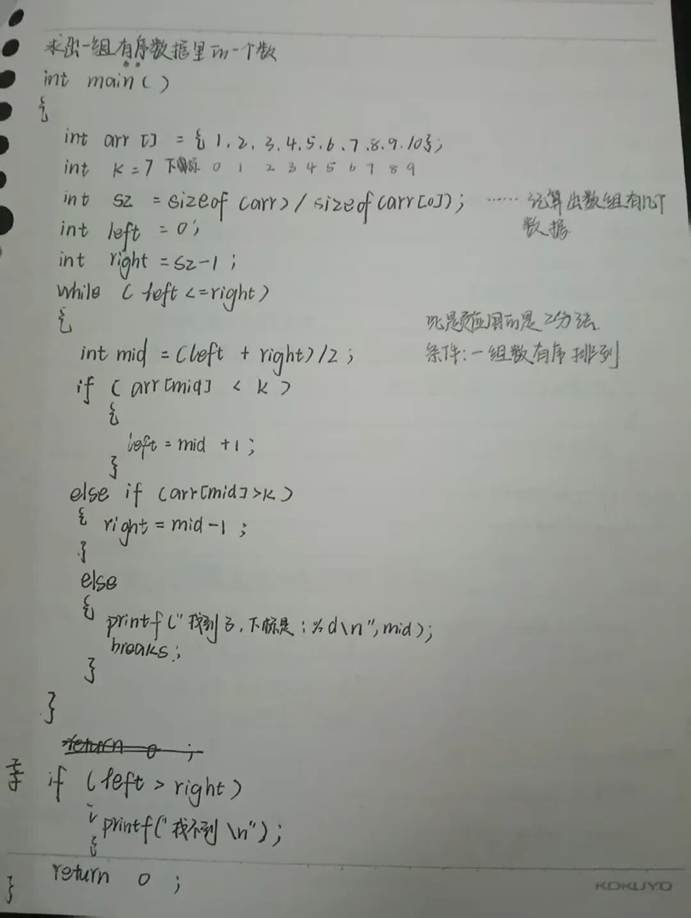 求出一组有序数据里的一个数
int main()
{
int arr[] = {1, 2, 3, 4, 5, 6, 7, 8, 9, 10};
int k = 7 下标 0 1 2 3 4 5 6 7 8 9
int sz = sizeof(arr) / sizeof(arr[0]); …… 计算出数组有几个
数据
int left = 0;
int right = sz-1;
while (left <= right)
{
此题应用的是2分法.
int mid = (left + right)/2;
条件:一组数有序排列
if (arr[mid] < k)
{
left = mid +1;
}
else if (arr[mid]>k)
{ right = mid-1;
}
else
{
printf("找到了,下标是:%d\n",mid);
breaks;
}
}
return 0 ;
if (left > right)
{
printf("找不到\n");
}
return 0 ;
}
KOKUYO